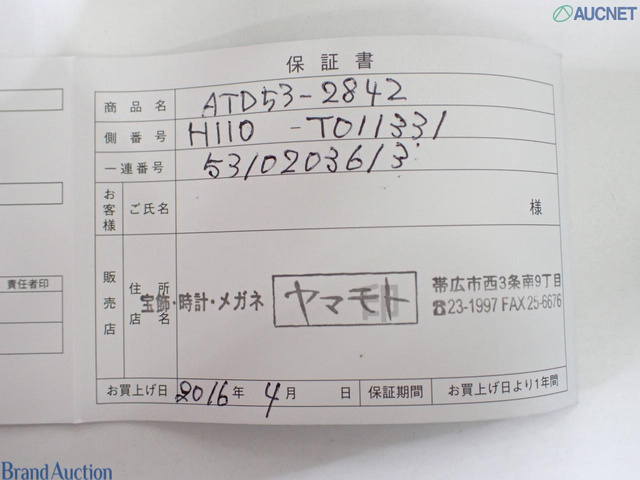 AUCNET
保証書
商品名 ATD53-2842
側番号 H110 -T011331
一連番号 5310203613
お客様 ご氏名 様
販売店 住所 店名
宝飾・時計・メガネ ヤマモト 印
帯広市西3条南9丁目
☎23-1997 FAX25-6676
責任者印
お買上げ日 2016年 4月 日 保証期間 お買上げ日より1年間
Brand Auction